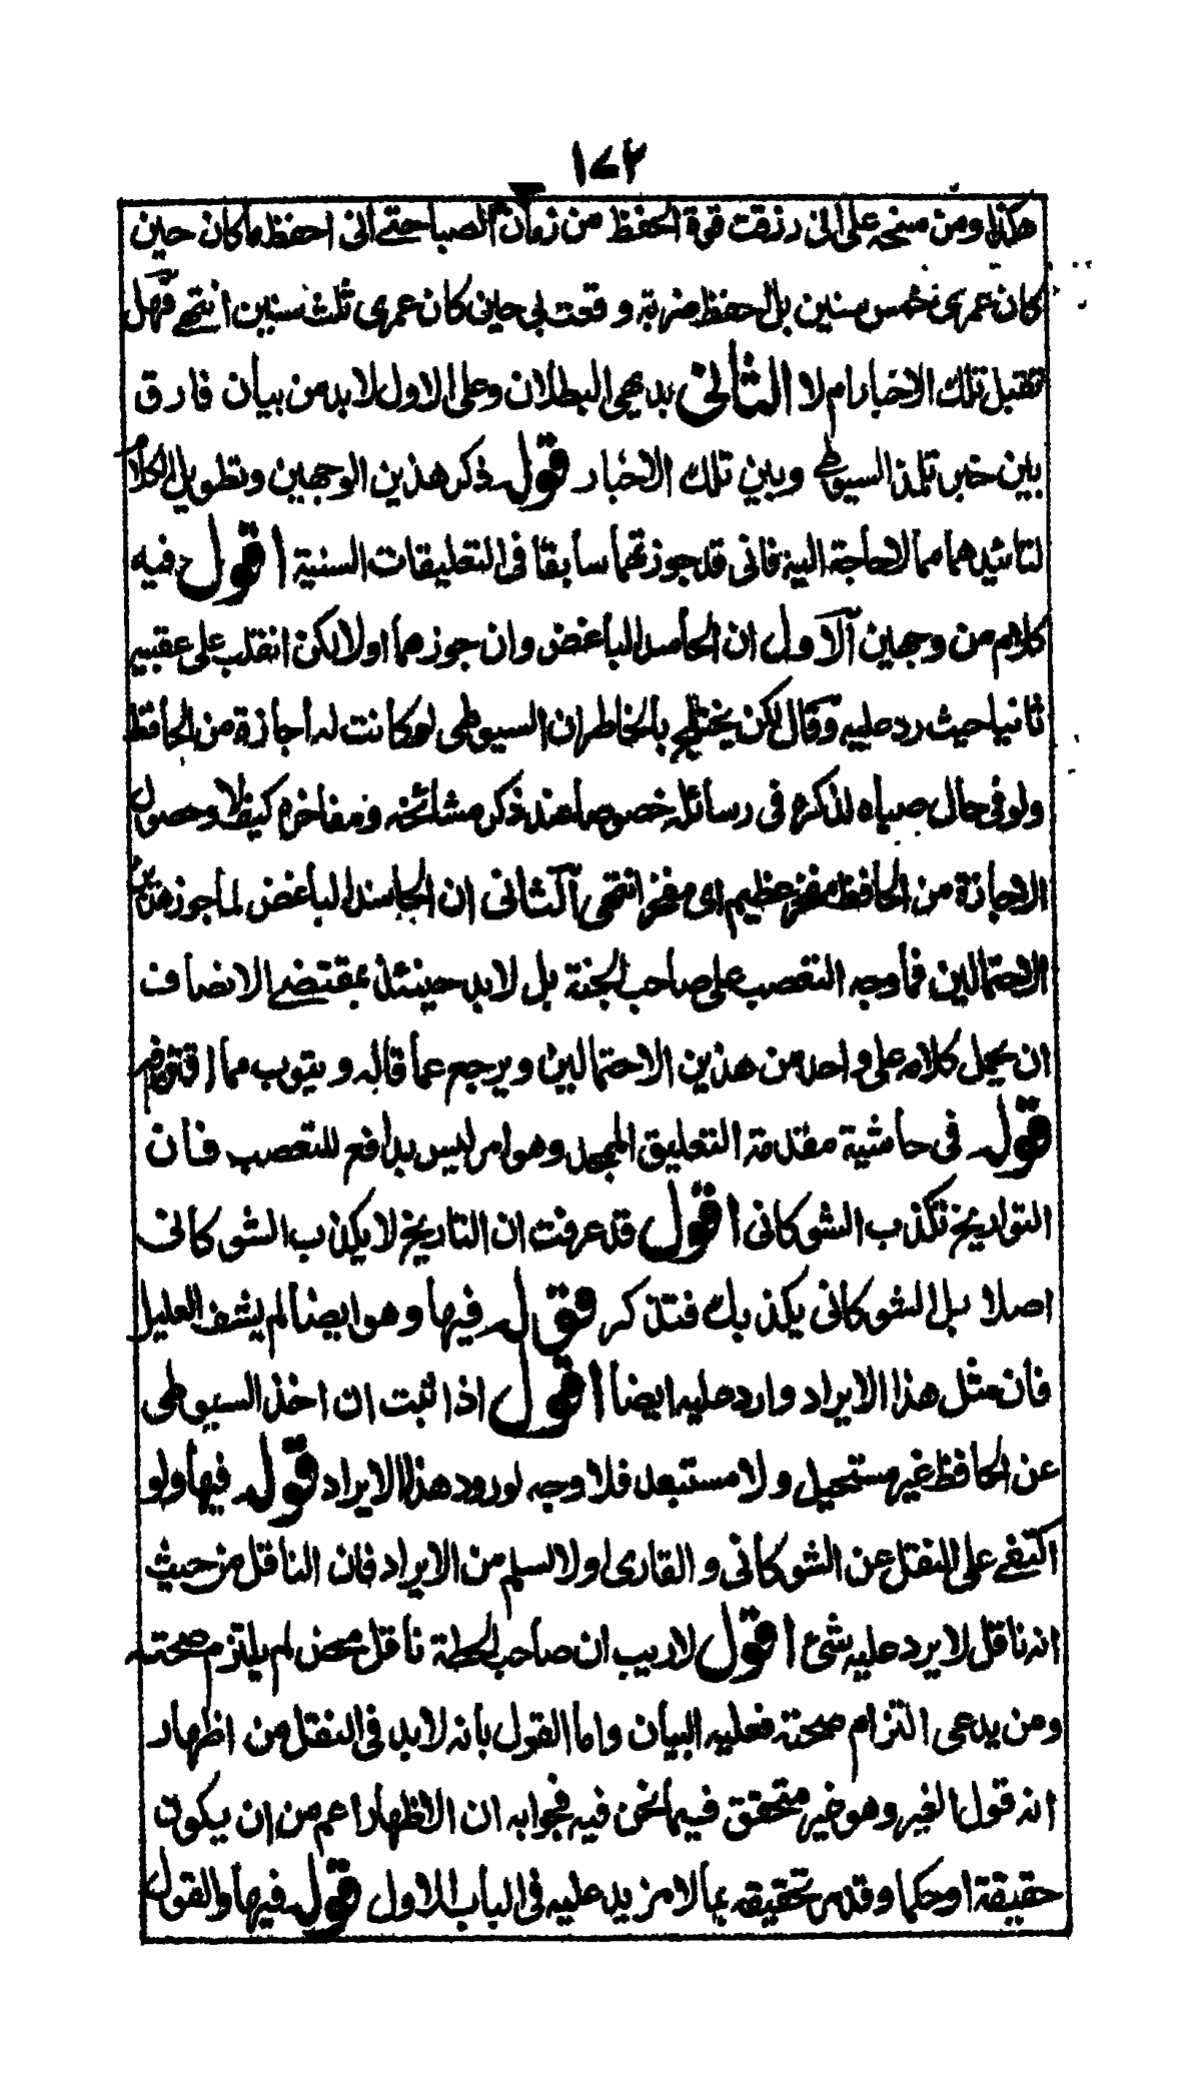 ١٧٢
هكذا ومن منحه على انى رزقت قوة الحفظ من زمان الصبا حتے انى احفظ ما كان حين
كان عمرى خمس سنين بل احفظ ضربة وقعت بى حانى كان عمرى ثلث سنين انتهے فهل
تقبل تلك الاخبار ام لا الثانى بديهى البطلان وعلى الاول لابد من بيان فارق
بين خبر تلمذ السيوطے وبين تلك الاخبار قوله ذكر هذين الوجهين وتطويل الكلام
لتائيدهما مما لاحاجة اليه فانى قد جوزتهما سابقا فى التعليقات السنية اقول فيه
كلام من وجهين آلاول ان الحاسد الباغض وان جوزهما اولا لكن انقلب على عقبيه
ثانيا حيث رد عليه وقال لكن يختلج بالخاطر ان السيوطى لو كانت له اجازة من الحافظ
ولو فى حال صباه لذكره فى رسائله خصوصا عند ذكر مشائخه ومفاخره كيف لا وحصول
الاجازة من الحافظ مفخر عظيم اى مفخر انتهى آلثانى ان الحاسد الباغض لما جوز هذين
الاحتمالين فما وجه التعصب على صاحب الجنة بل لابد حينئذ بمقتضے الانصاف
ان يحمل كلامه على واحد من هذين الاحتمالين ويرجع عما قاله ويتوب مما اقترفه
قوله فى حاشية مقدمة التعليق الممجد وهو امر ليس بدافع للتعصب فان
التواريخ تكذب الشوكانى اقول قد عرفت ان التاريخ لا يكذب الشوكانى
اصلا بل الشوكانى يكذبك فتذكر قوله فيها وهو ايضا لم يشف العليل
فان مثل هذا الايراد وارد عليه ايضا اقول اذا ثبت ان اخذ السيوطى
عن الحافظ غير مستحيل ولا مستبعد فلا وجه لورود هذا الايراد قوله فيها ولو
اكتفے على النقل عن الشوكانى والقارى اولا لسلم من الايراد فان الناقل من حيث
انه ناقل لا يرد عليه شئ اقول لا ريب ان صاحب الحطة ناقل محض لم يلتزم صحته
ومن يدعى التزام صحته فعليه البيان واما القول بانه لابد فى النقل من اظهار
انه قول الغير وهو غير متحقق فيما نحن فيه فجوابه ان الاظهار اعم من ان يكون
حقيقة او حكما وقد مر تحقيقه بما لا مزيد عليه فى الباب الاول قوله فيها والقول